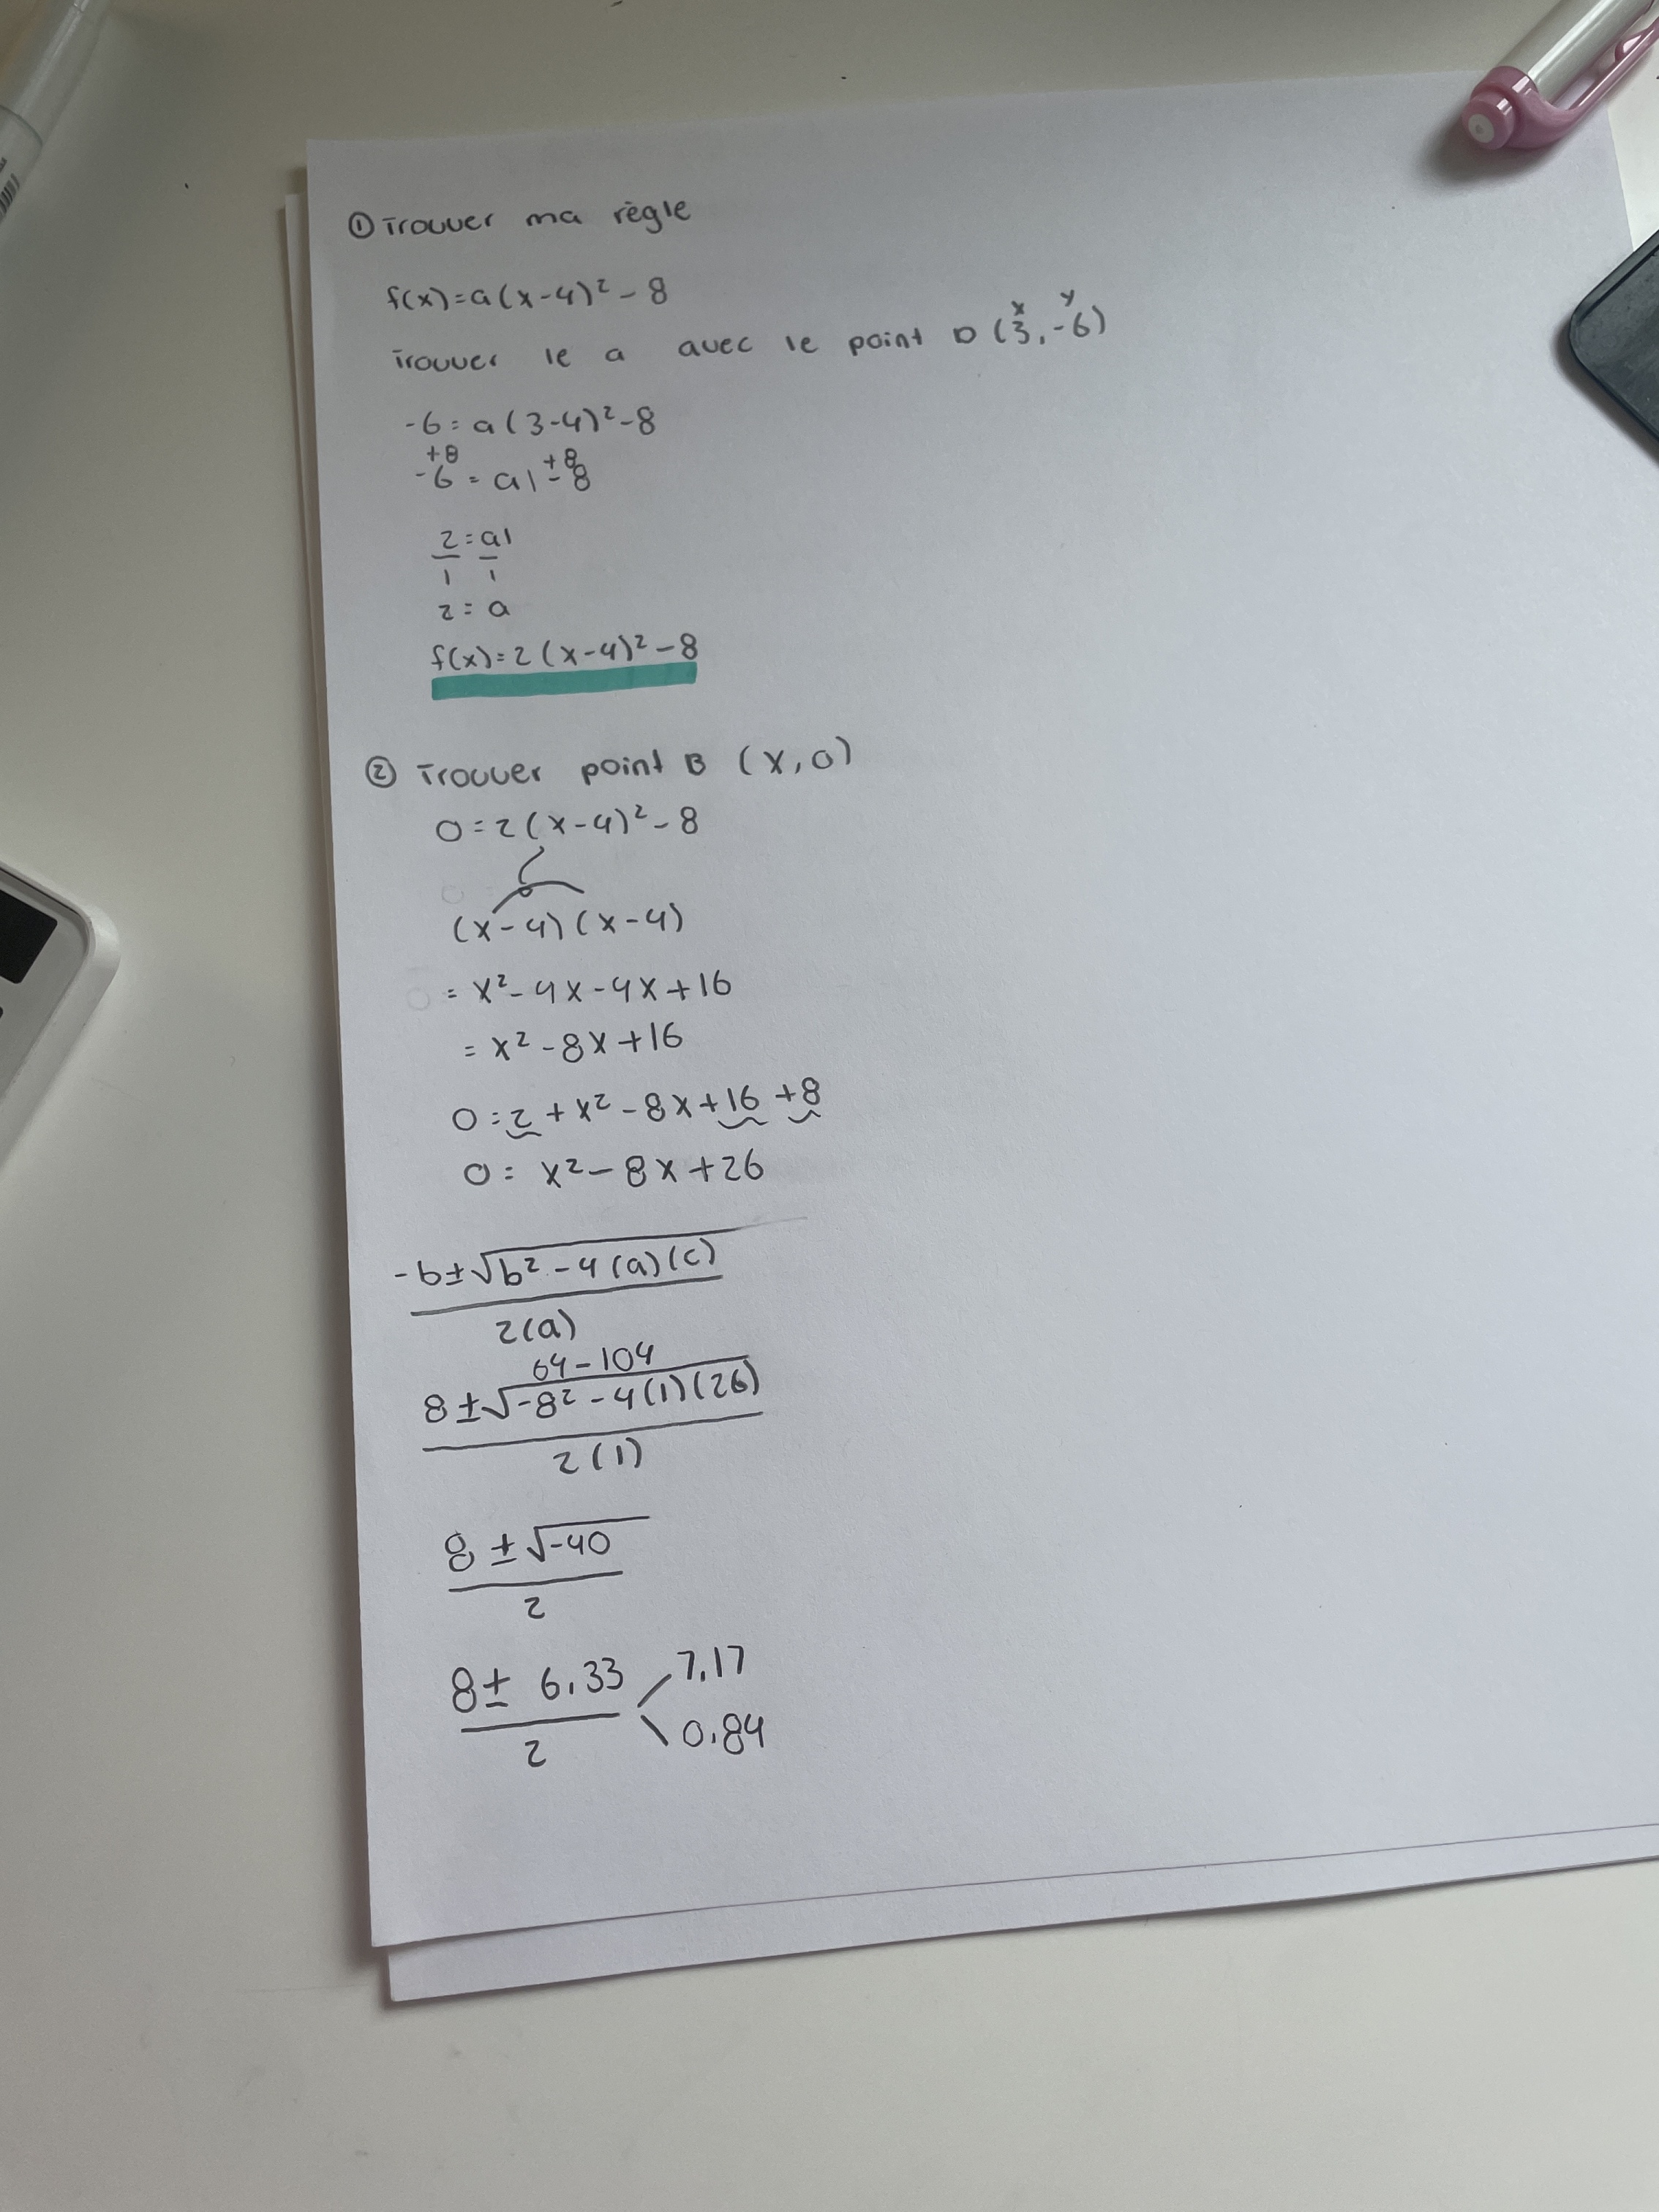 ① Trouver ma règle
f(x)=a(x-4)²-8
Trouver le a avec le point D (3,-6)
x y
-6=a(3-4)²-8
+8 +8
-6=a1-8
2=a1
1 1
2=a
f(x)=2(x-4)²-8
② Trouver point B (x,0)
0=2(x-4)²-8
(x-4)(x-4)
=x²-4x-4x+16
=x²-8x+16
0=2+x²-8x+16+8
0=x²-8x+26
-b±√b²-4(a)(c)
2(a)
64-104
8±√-8²-4(1)(26)
2(1)
8±√-40
2
8±6,33 7,17
2 0,84